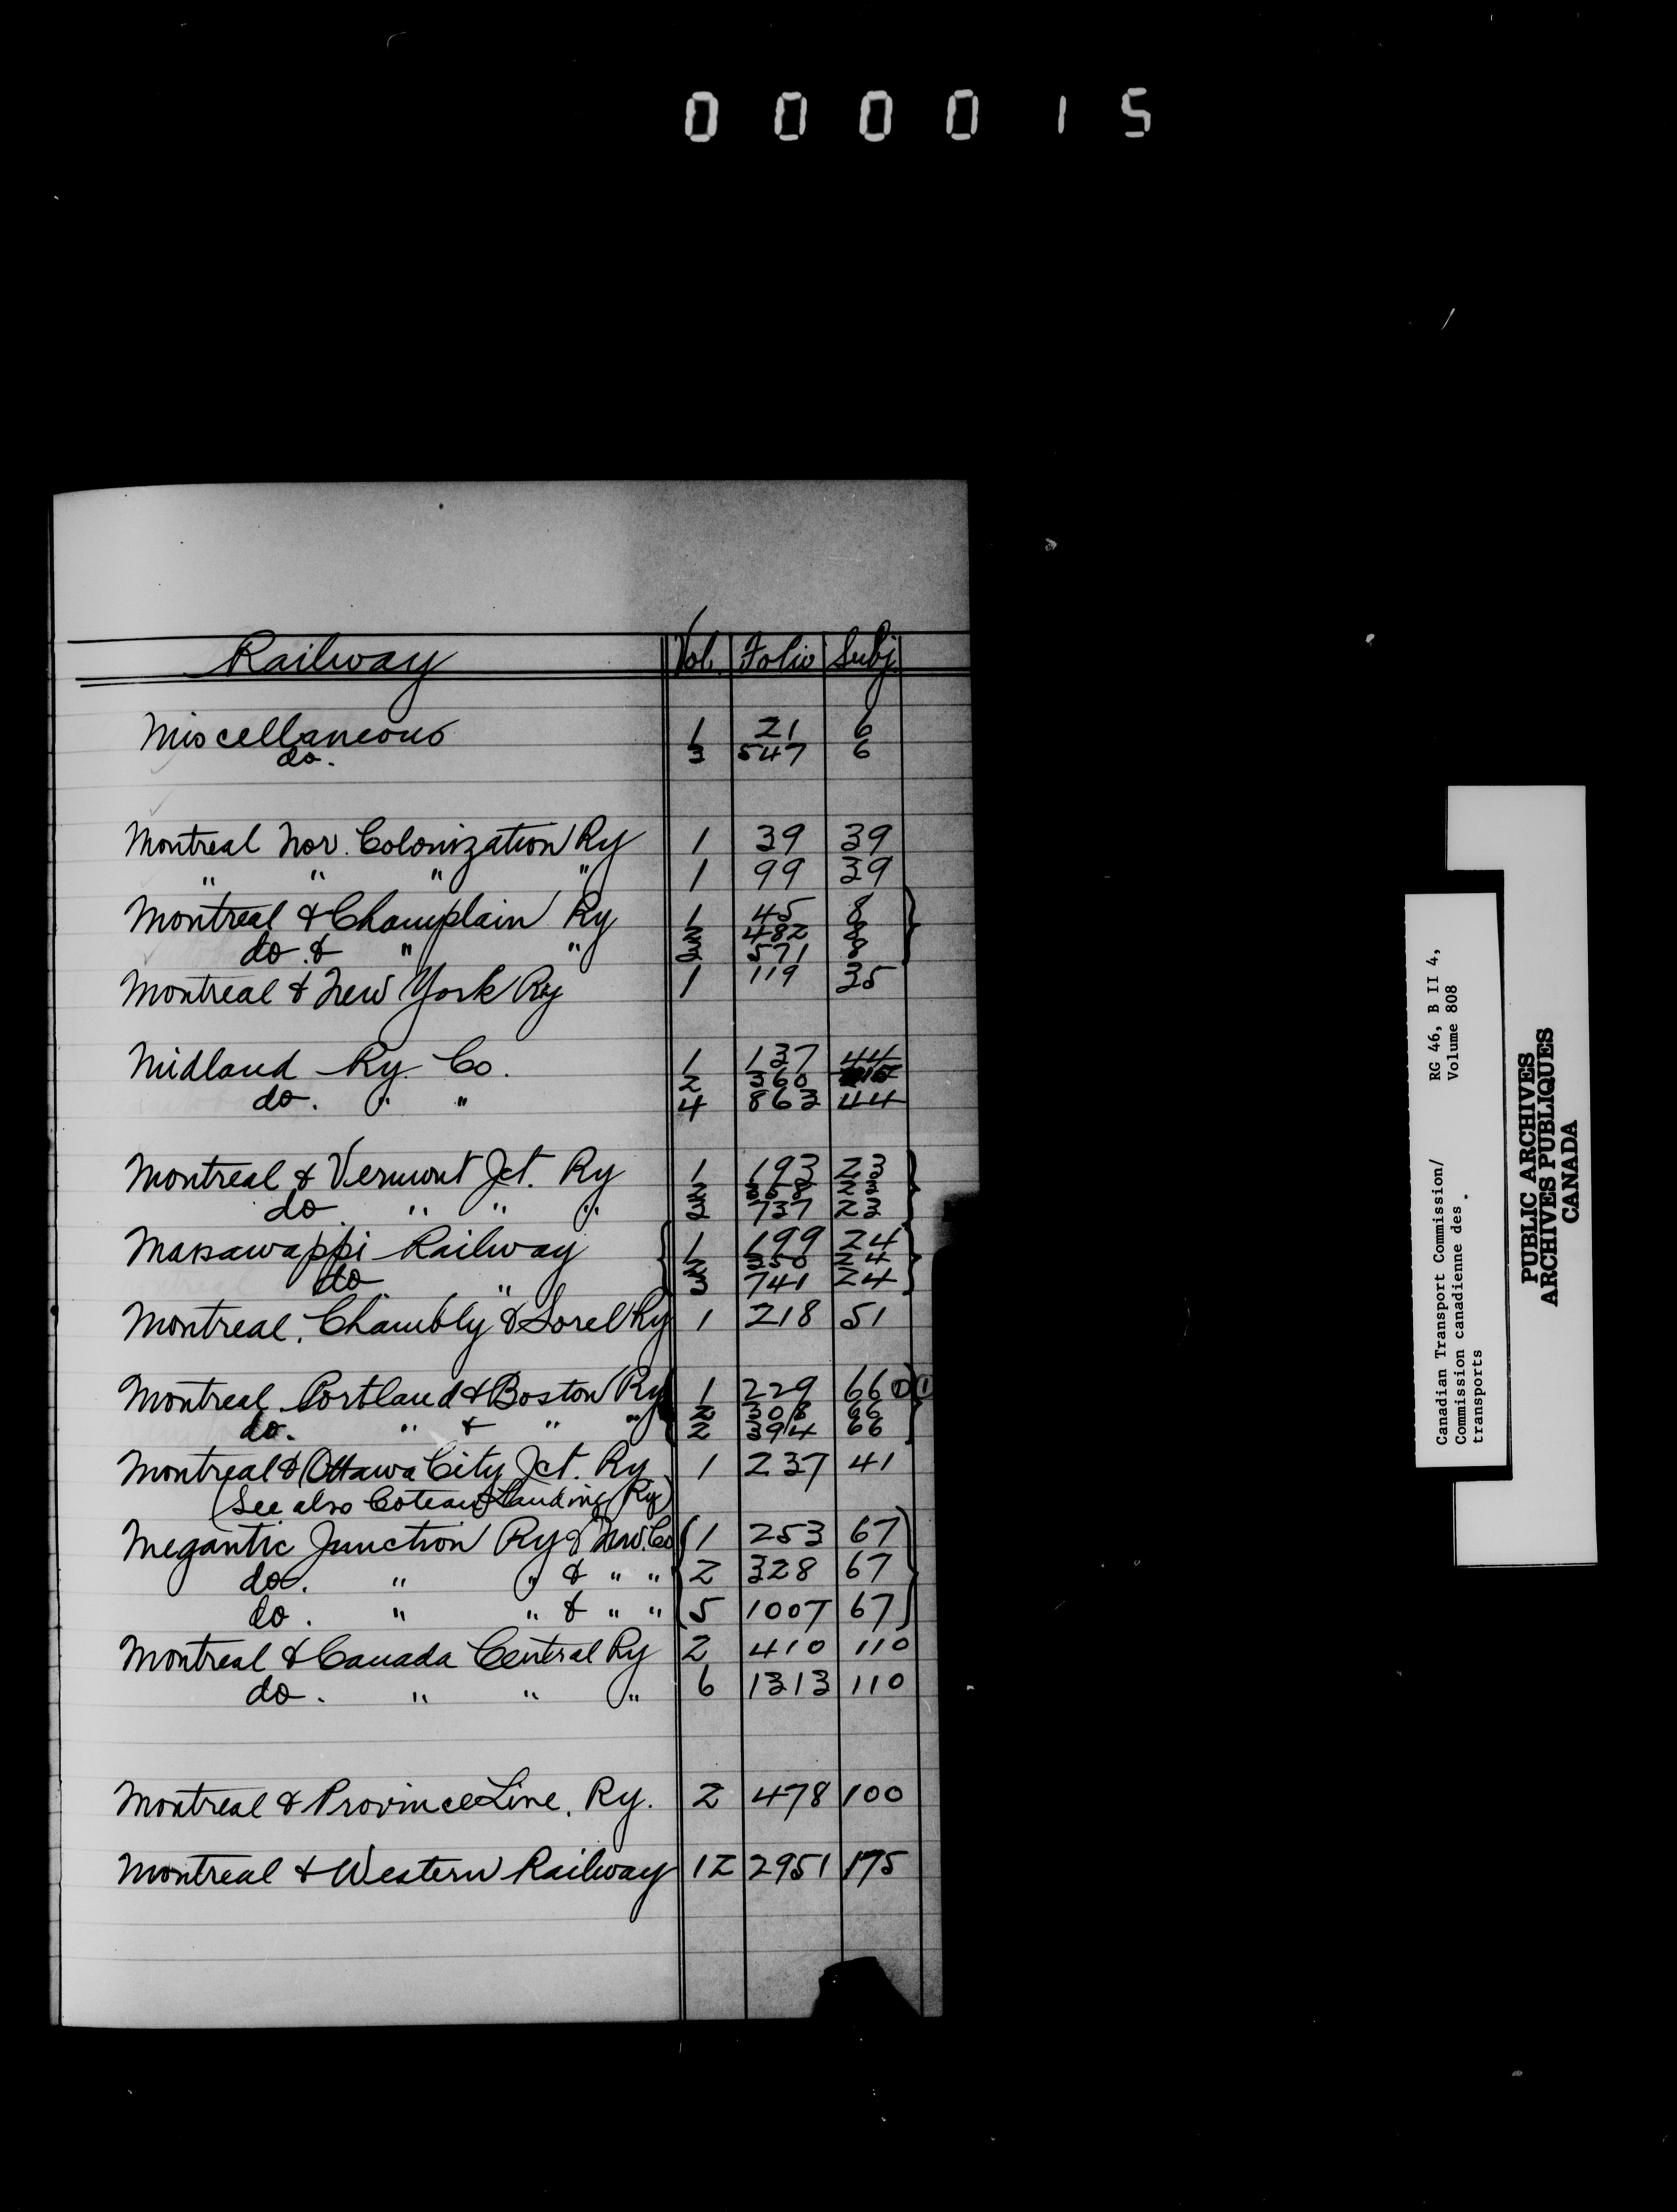 000015
Railway Vol. Folio Subj.
Miscellaneous 1 21 6
do. 3 547 6
Montreal Nor. Colonization Ry 1 39 39
" " " " 1 99 39
Montreal & Champlain Ry 1 45 8
2 482 8
do. & " " 3 571 8
Montreal & New York Ry 1 119 35
Midland Ry. Co. 1 137 44
2 360
do. " " 4 863 44
Montreal & Vermont Jct. Ry 1 193 23
2 23
do. " " " 3 737 23
Massawappi Railway 1 199 24
2 350 24
do " 3 741 24
Montreal, Chambly & Sorel Ry 1 218 51
Montreal Portland & Boston Ry 1 229 66 1 1
2 308 66
do. " & " " 2 394 66
Montreal & Ottawa City Jct. Ry 1 237 41
(See also Coteau Landing Ry)
Megantic Junction Ry & Nav. Co 1 253 67
do. " " & " " 2 328 67
do. " " & " " 5 1007 67
Montreal & Canada Central Ry 2 410 110
do. " " " 6 1313 110
Montreal & Province Line. Ry. 2 478 100
Montreal & Western Railway 12 2951 175
Canadian Transport Commission/ RG 46, B II 4,
Commission canadienne des Volume 808
transports
PUBLIC ARCHIVES
ARCHIVES PUBLIQUES
CANADA